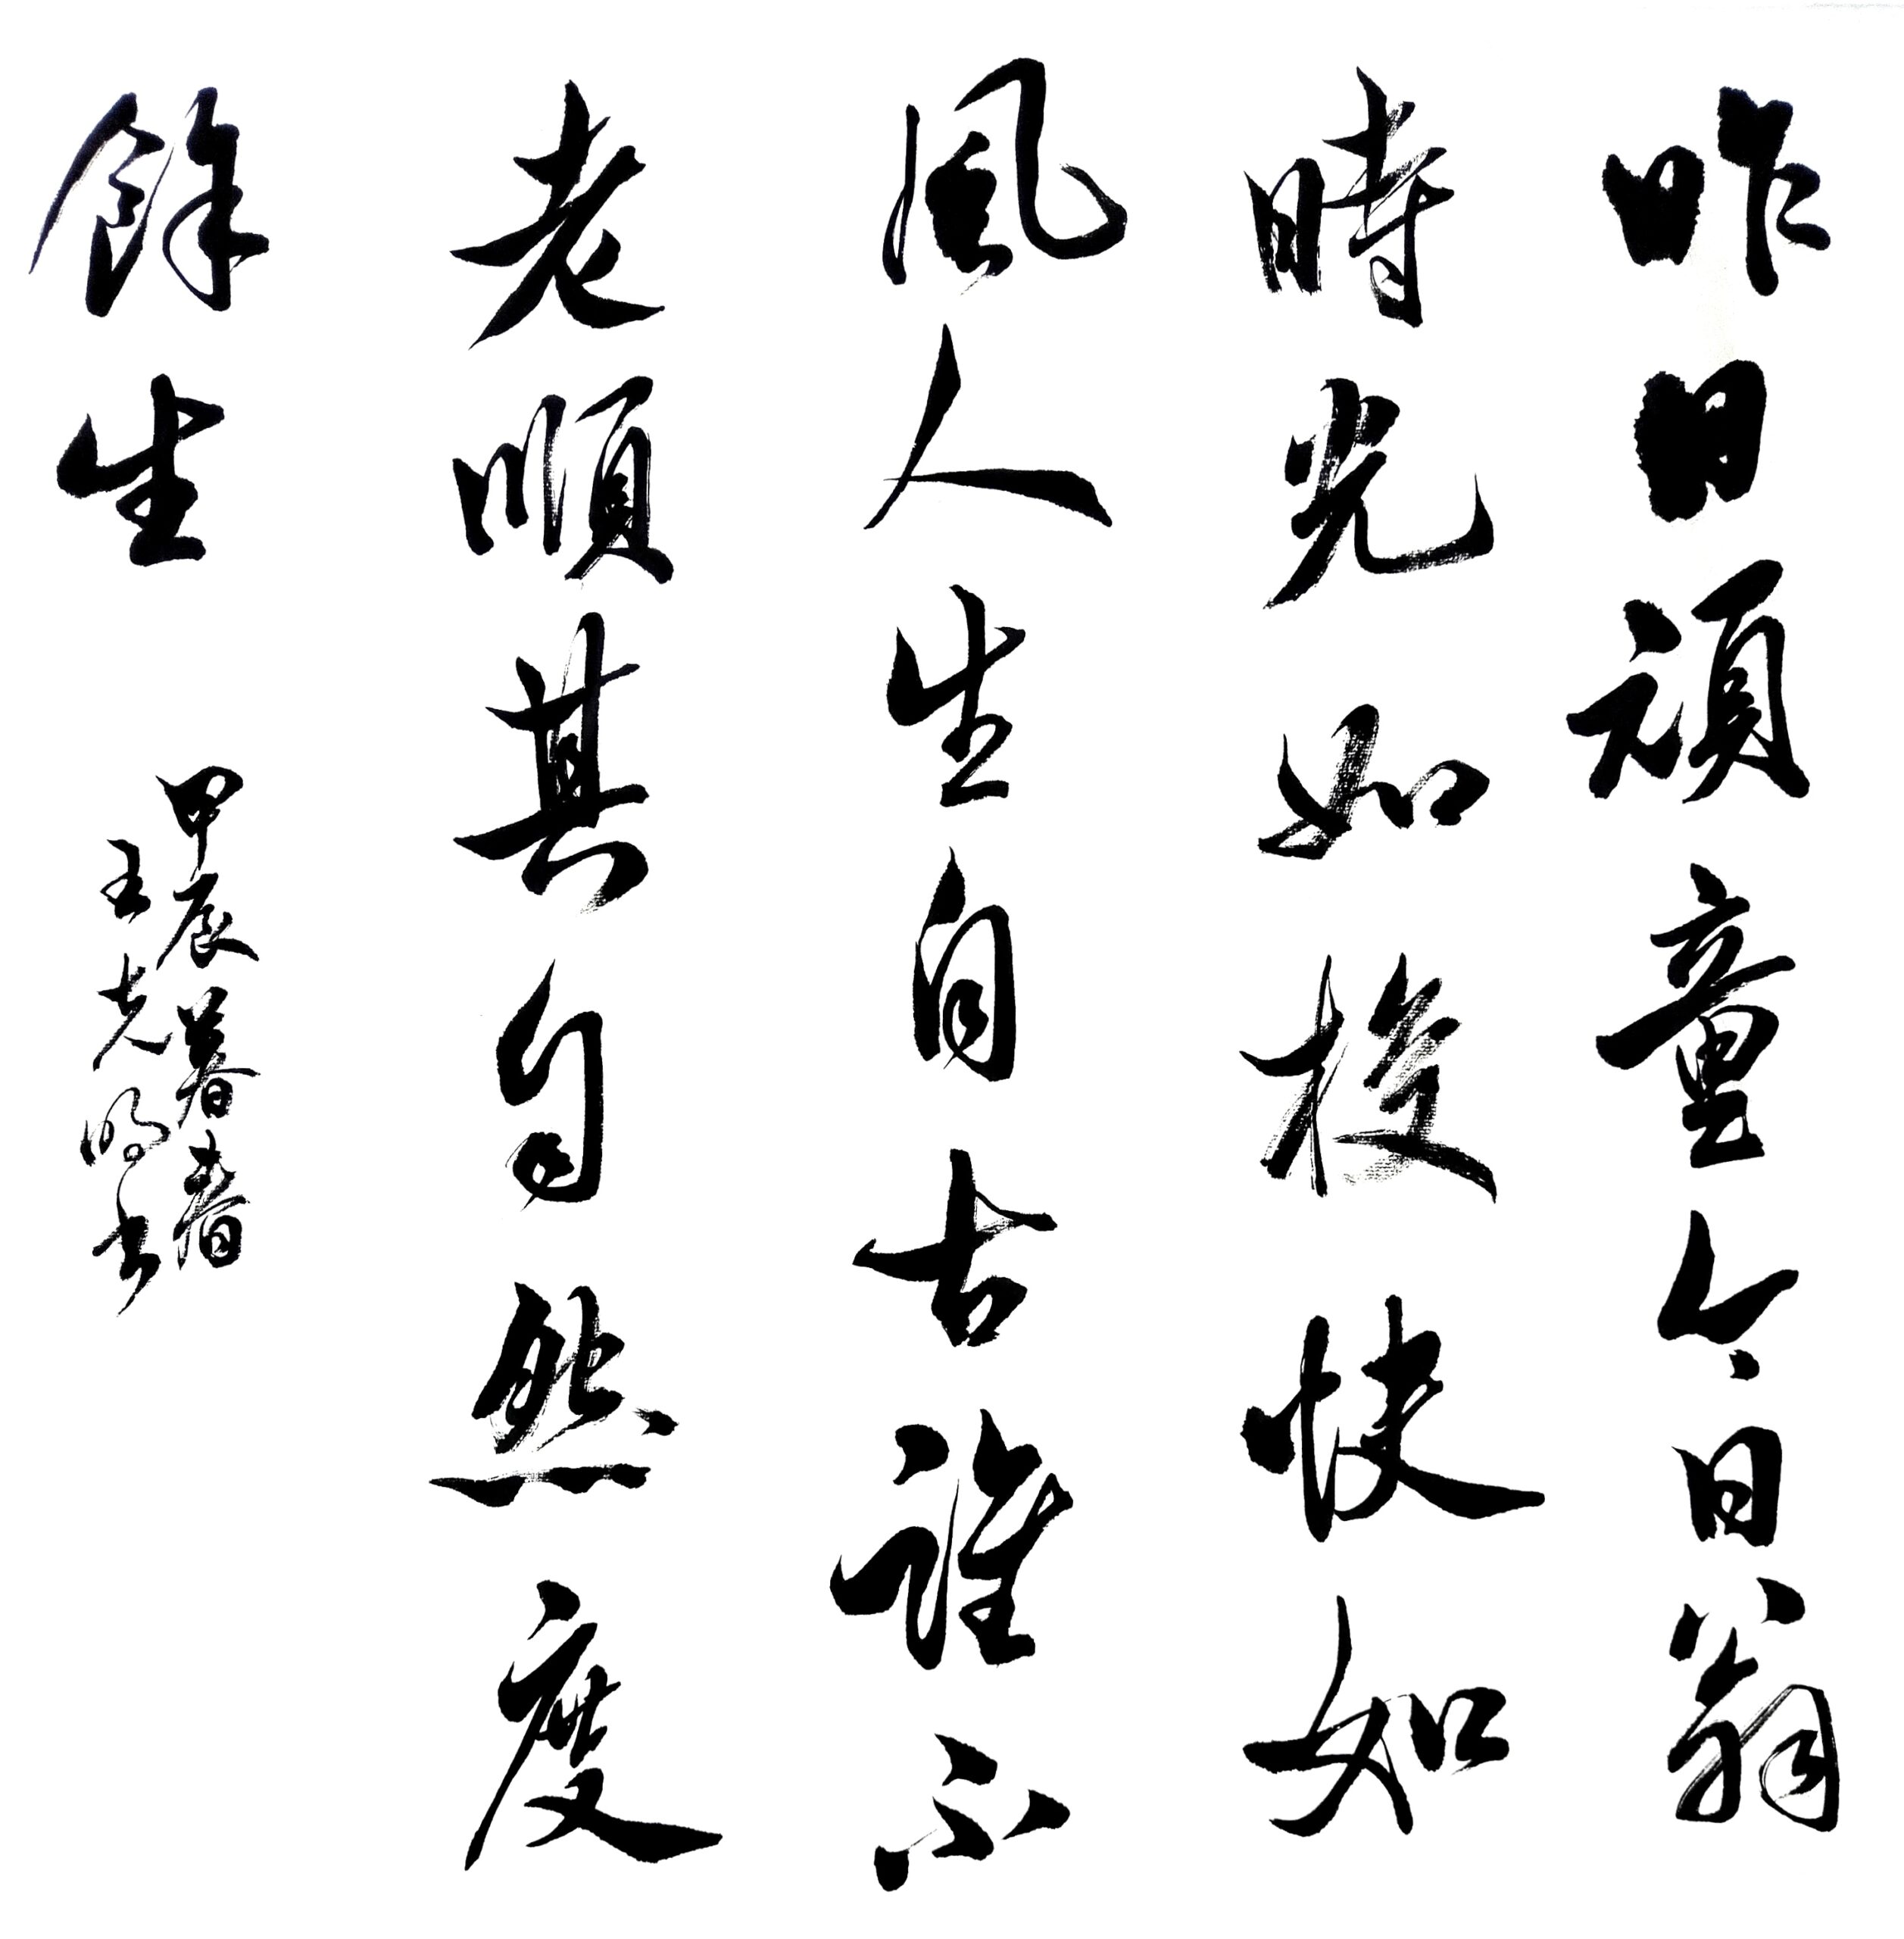 昨日頑童今日翁
時光如梭快如
風人生自古誰不
老順其自然度
餘生
甲辰暮春
王光明書